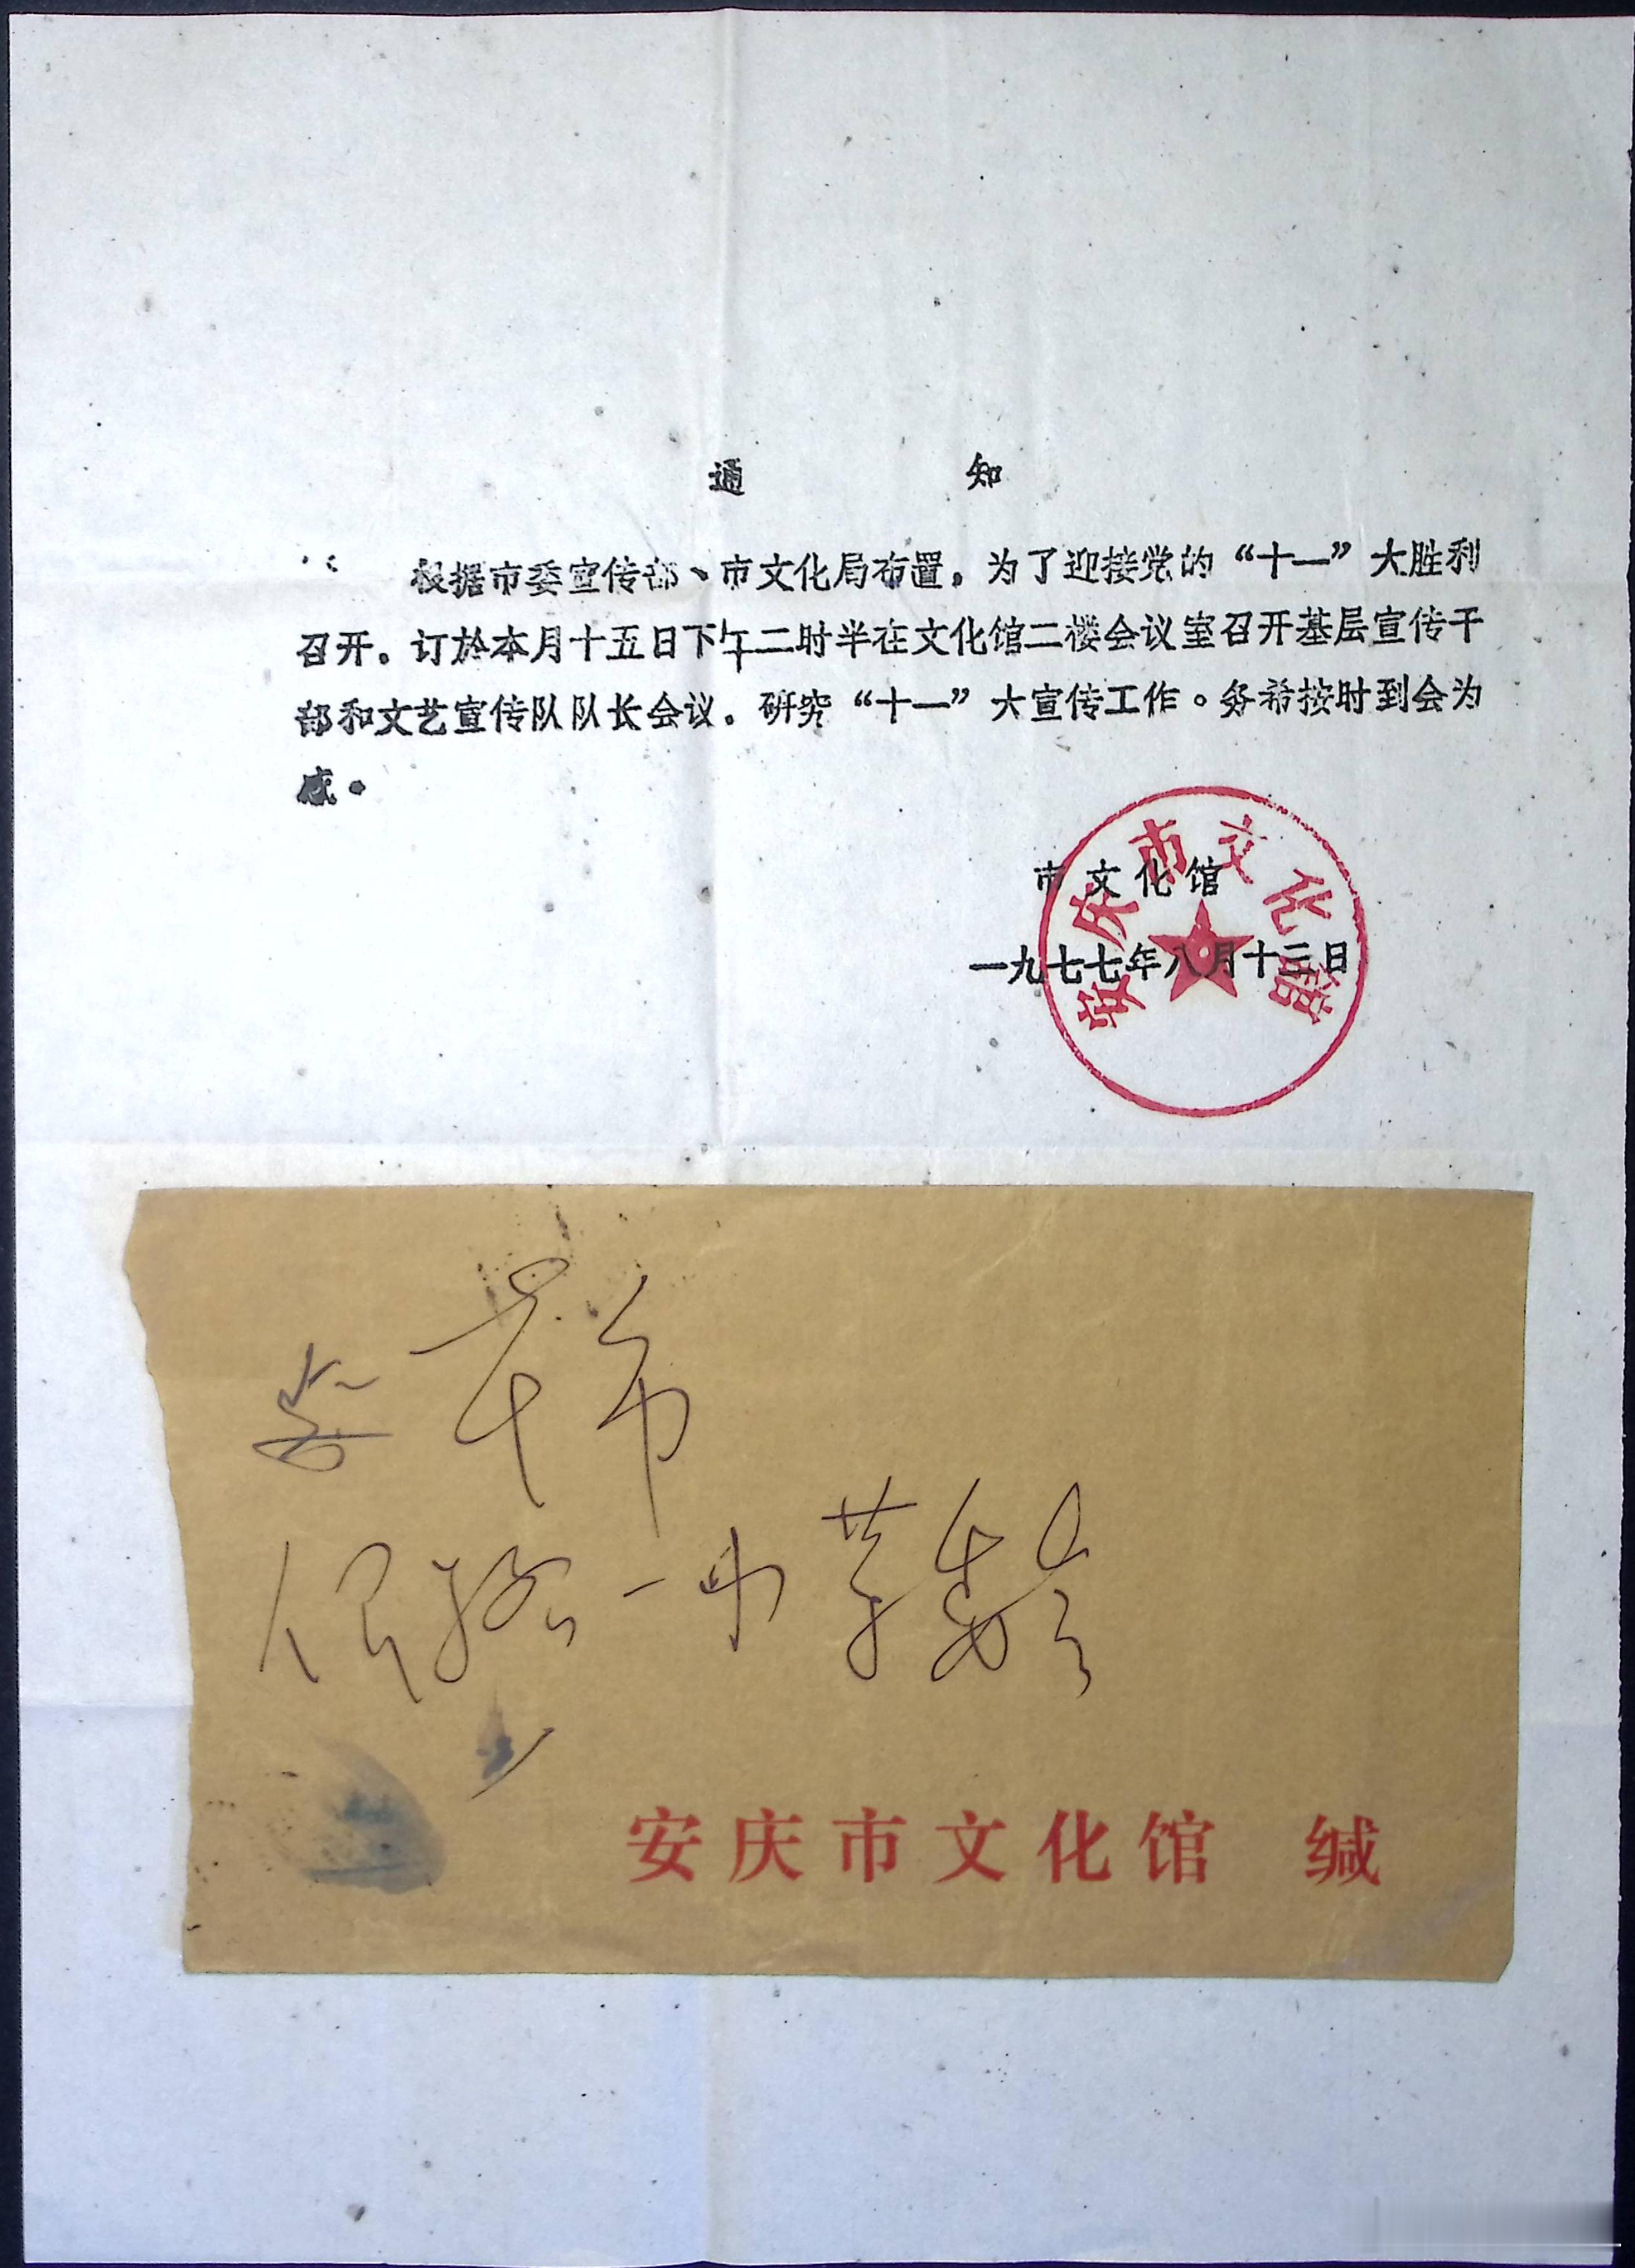 通 知
根据市委宣传部、市文化局布置，为了迎接党的“十一”大胜利
召开。订於本月十五日下午二时半在文化馆二楼会议室召开基层宣传干
部和文艺宣传队队长会议。研究“十一”大宣传工作。务希按时到会为
感。
市文化馆
一九七七年八月十三日
安庆市文化馆
本市
一中
安庆市文化馆 缄